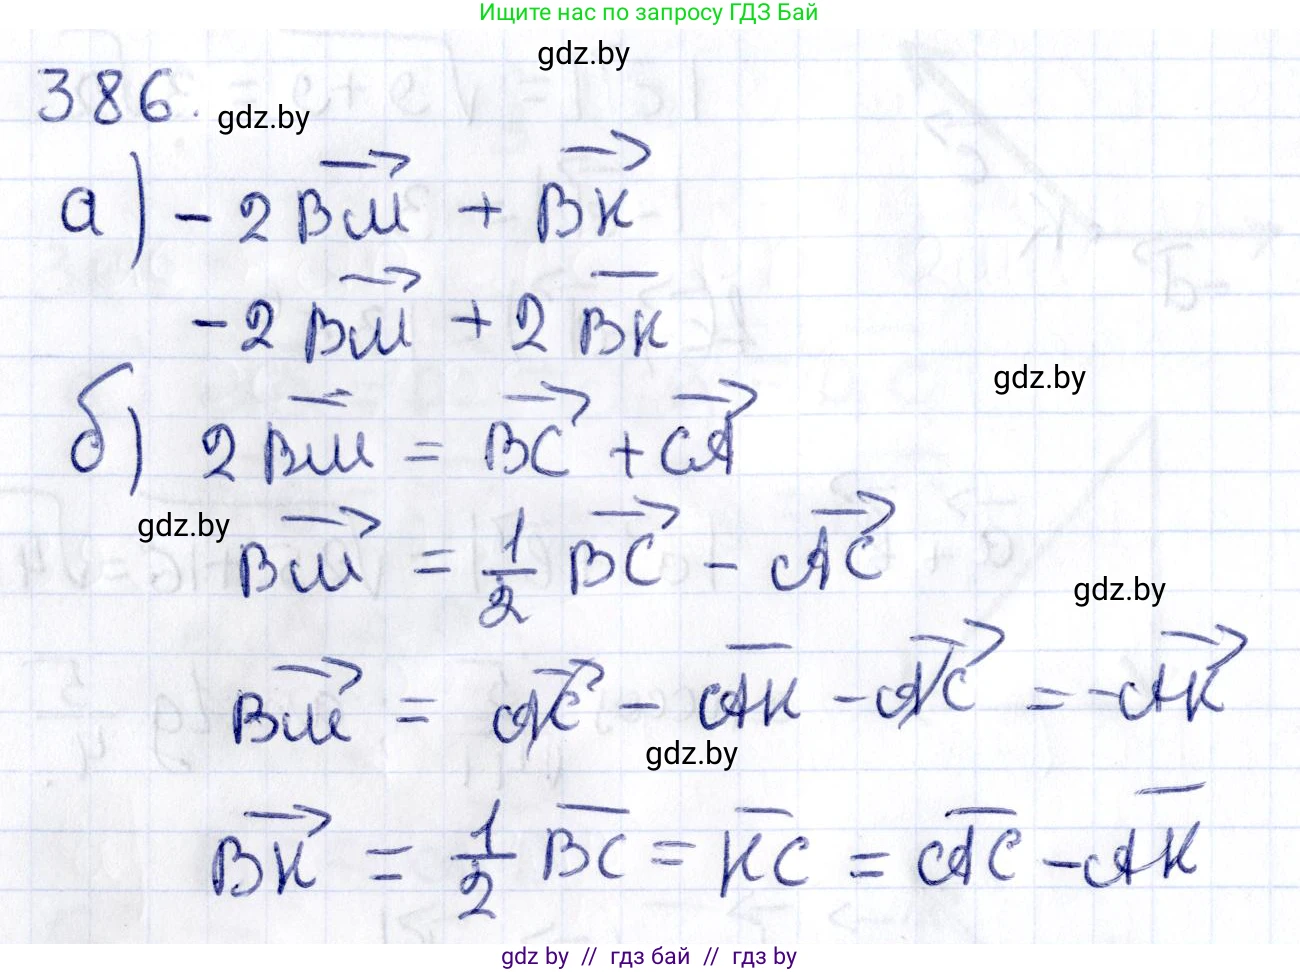 Ищите нас по запросу ГДЗ Бай
gdz.by
386. gdz.by
а) -2BM + BK
-2BM + 2BK
gdz.by
б) 2BM = BC + CA
gdz.by
BM = 1/2 BC - AC
gdz.by
BM = AC - AK - AC = -AK
gdz.by
BK = 1/2 BC = KC = AC - AK
gdz.by // гдз бай // гдз by